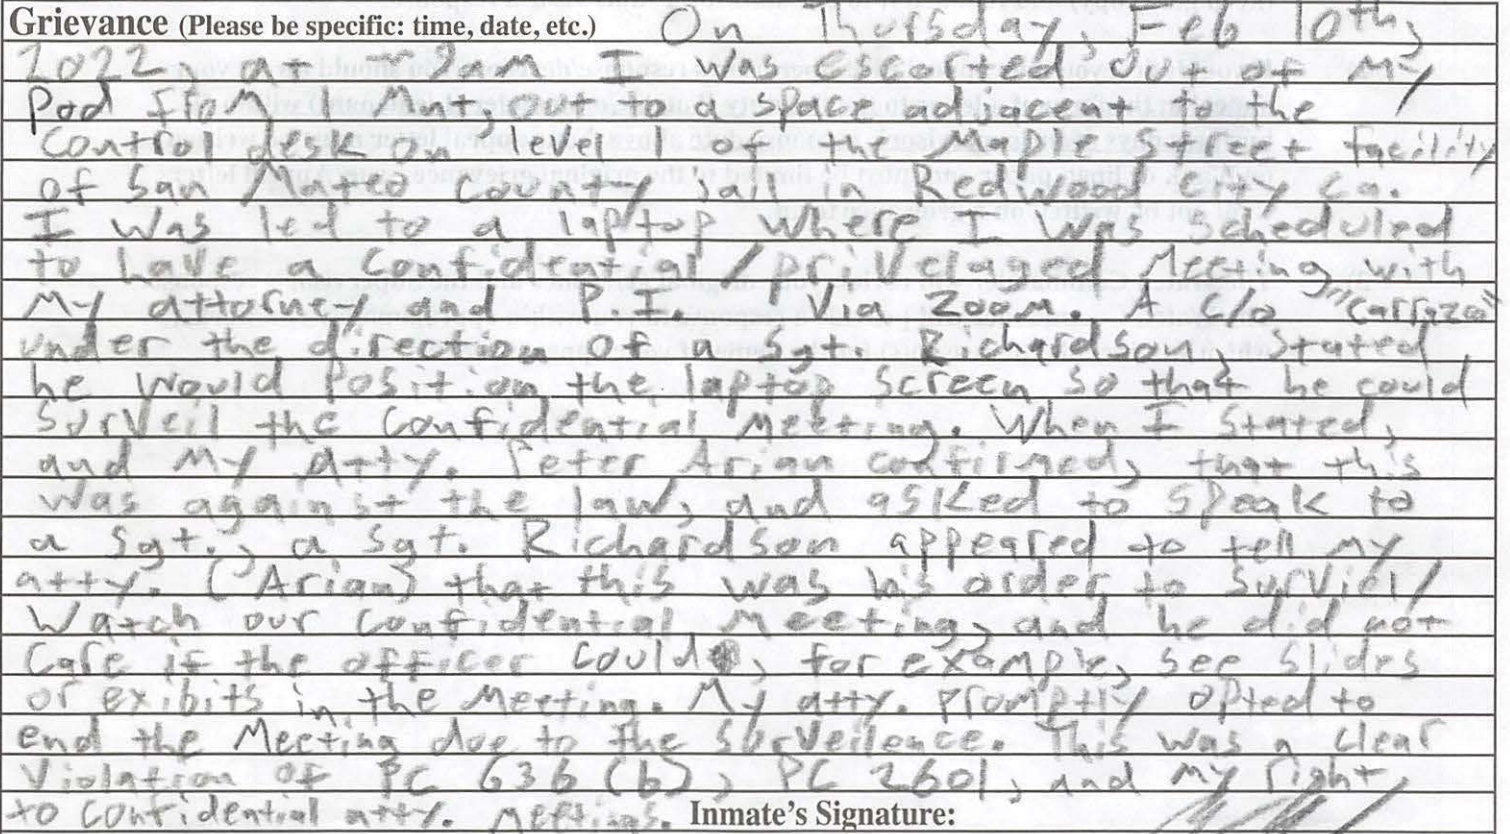 Grievance (Please be specific: time, date, etc.) On Thursday, Feb 10th,
2022, at am I was escorted out of my
Pod from, out to a space adjacent to the
Control desk on level 1 of the Maple Street facility
of San Mateo County jail in Redwood City Ca.
I was led to a laptop where I was scheduled
to have a confidential/privelaged Meeting with
My attorney and P.I. Via Zoom. A C/O "Carrizo"
under the direction of a Sgt. Richardson, stated
he would position the laptop screen so that he could
surveil the confidential meeting. When I stated,
and my Atty. Peter Arian confirmed, that this
was against the law, and asked to speak to
a Sgt., a Sgt. Richardson appeared to tell my
atty. (Arian) that this was his order, to surviel/
watch our confidential meeting, and he did not
care if the officer could, for example, see slides
or exibits in the meeting. My atty. promptly opted to
end the Meeting due to the surveilence. This was a clear
violation of PC 636 (b), PC 2601, and my right
to confidential atty. meetings. Inmate's Signature: